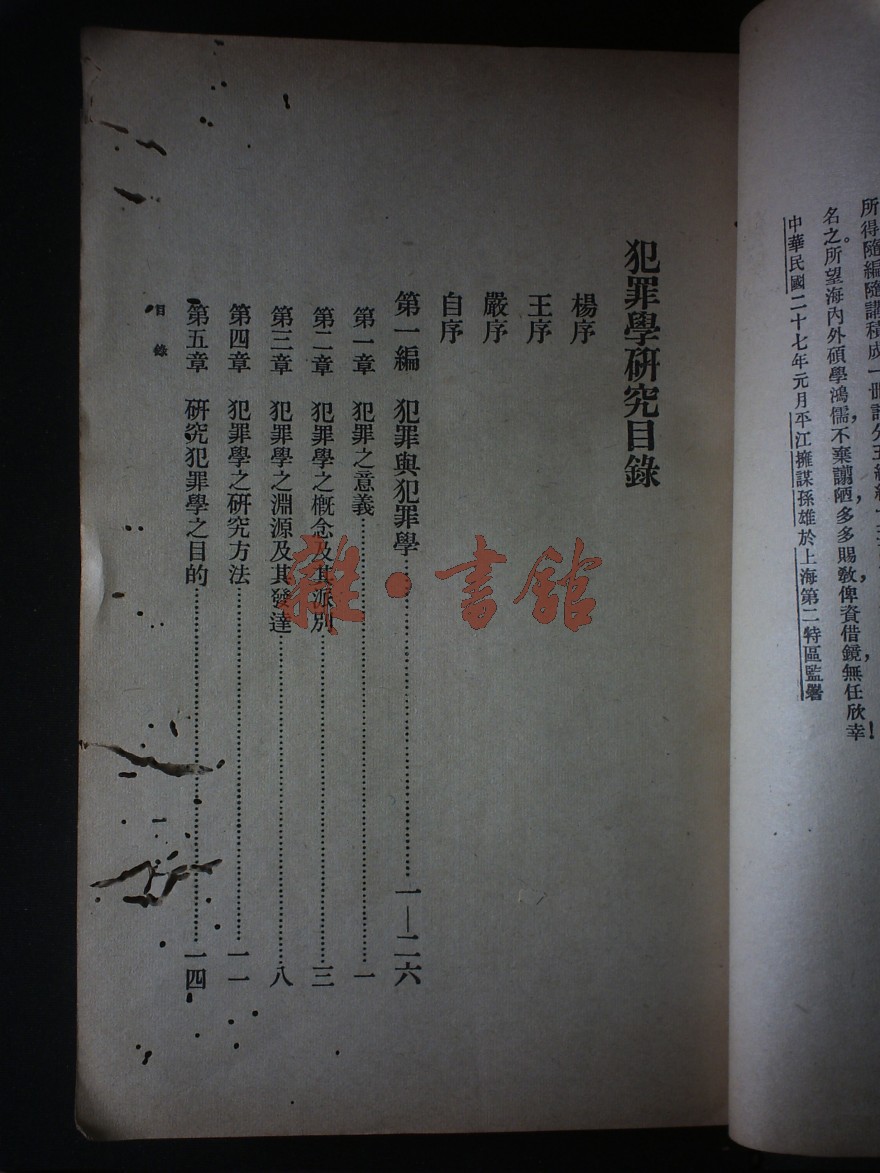 所得隨編隨講積成一冊
名之。所望海內外碩學鴻儒，不棄譾陋，多多賜教，俾資借鏡，無任欣幸！
中華民國二十七年元月平江擁謀孫雄於上海第二特區監署
犯罪學研究目錄
楊序
王序
嚴序
自序
第一編　犯罪與犯罪學……一—二六
第一章　犯罪之意義……一
第二章　犯罪學之概念及其派別……三
第三章　犯罪學之淵源及其發達……八
第四章　犯罪學之研究方法……一一
第五章　研究犯罪學之目的……一四
目錄
一
雜·書館